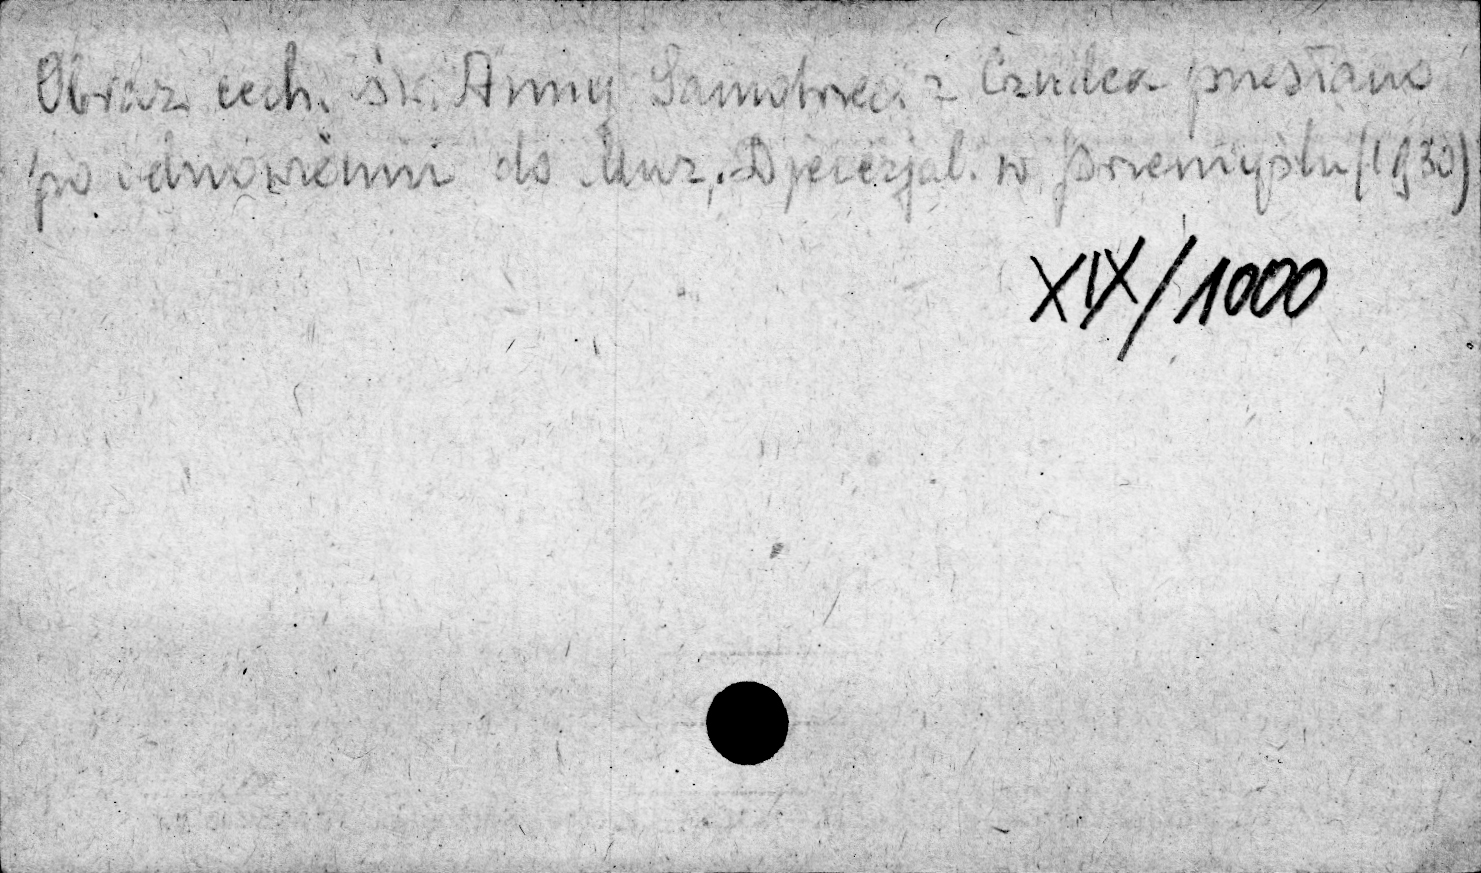 Obraz cech. św. Anny Samotrzeć z Czudca przesłano
po odnowieniu do Muz. Djecezjal. w Przemyślu (1930)
XIX/1000